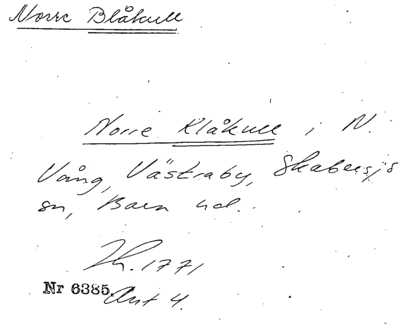 Norre Blåkull
Norre Klåkull i N.
Vång, Västraby, Skabersjö
sn, Bara hd.
Lh. 1771
Nr 6385
Akt 4.